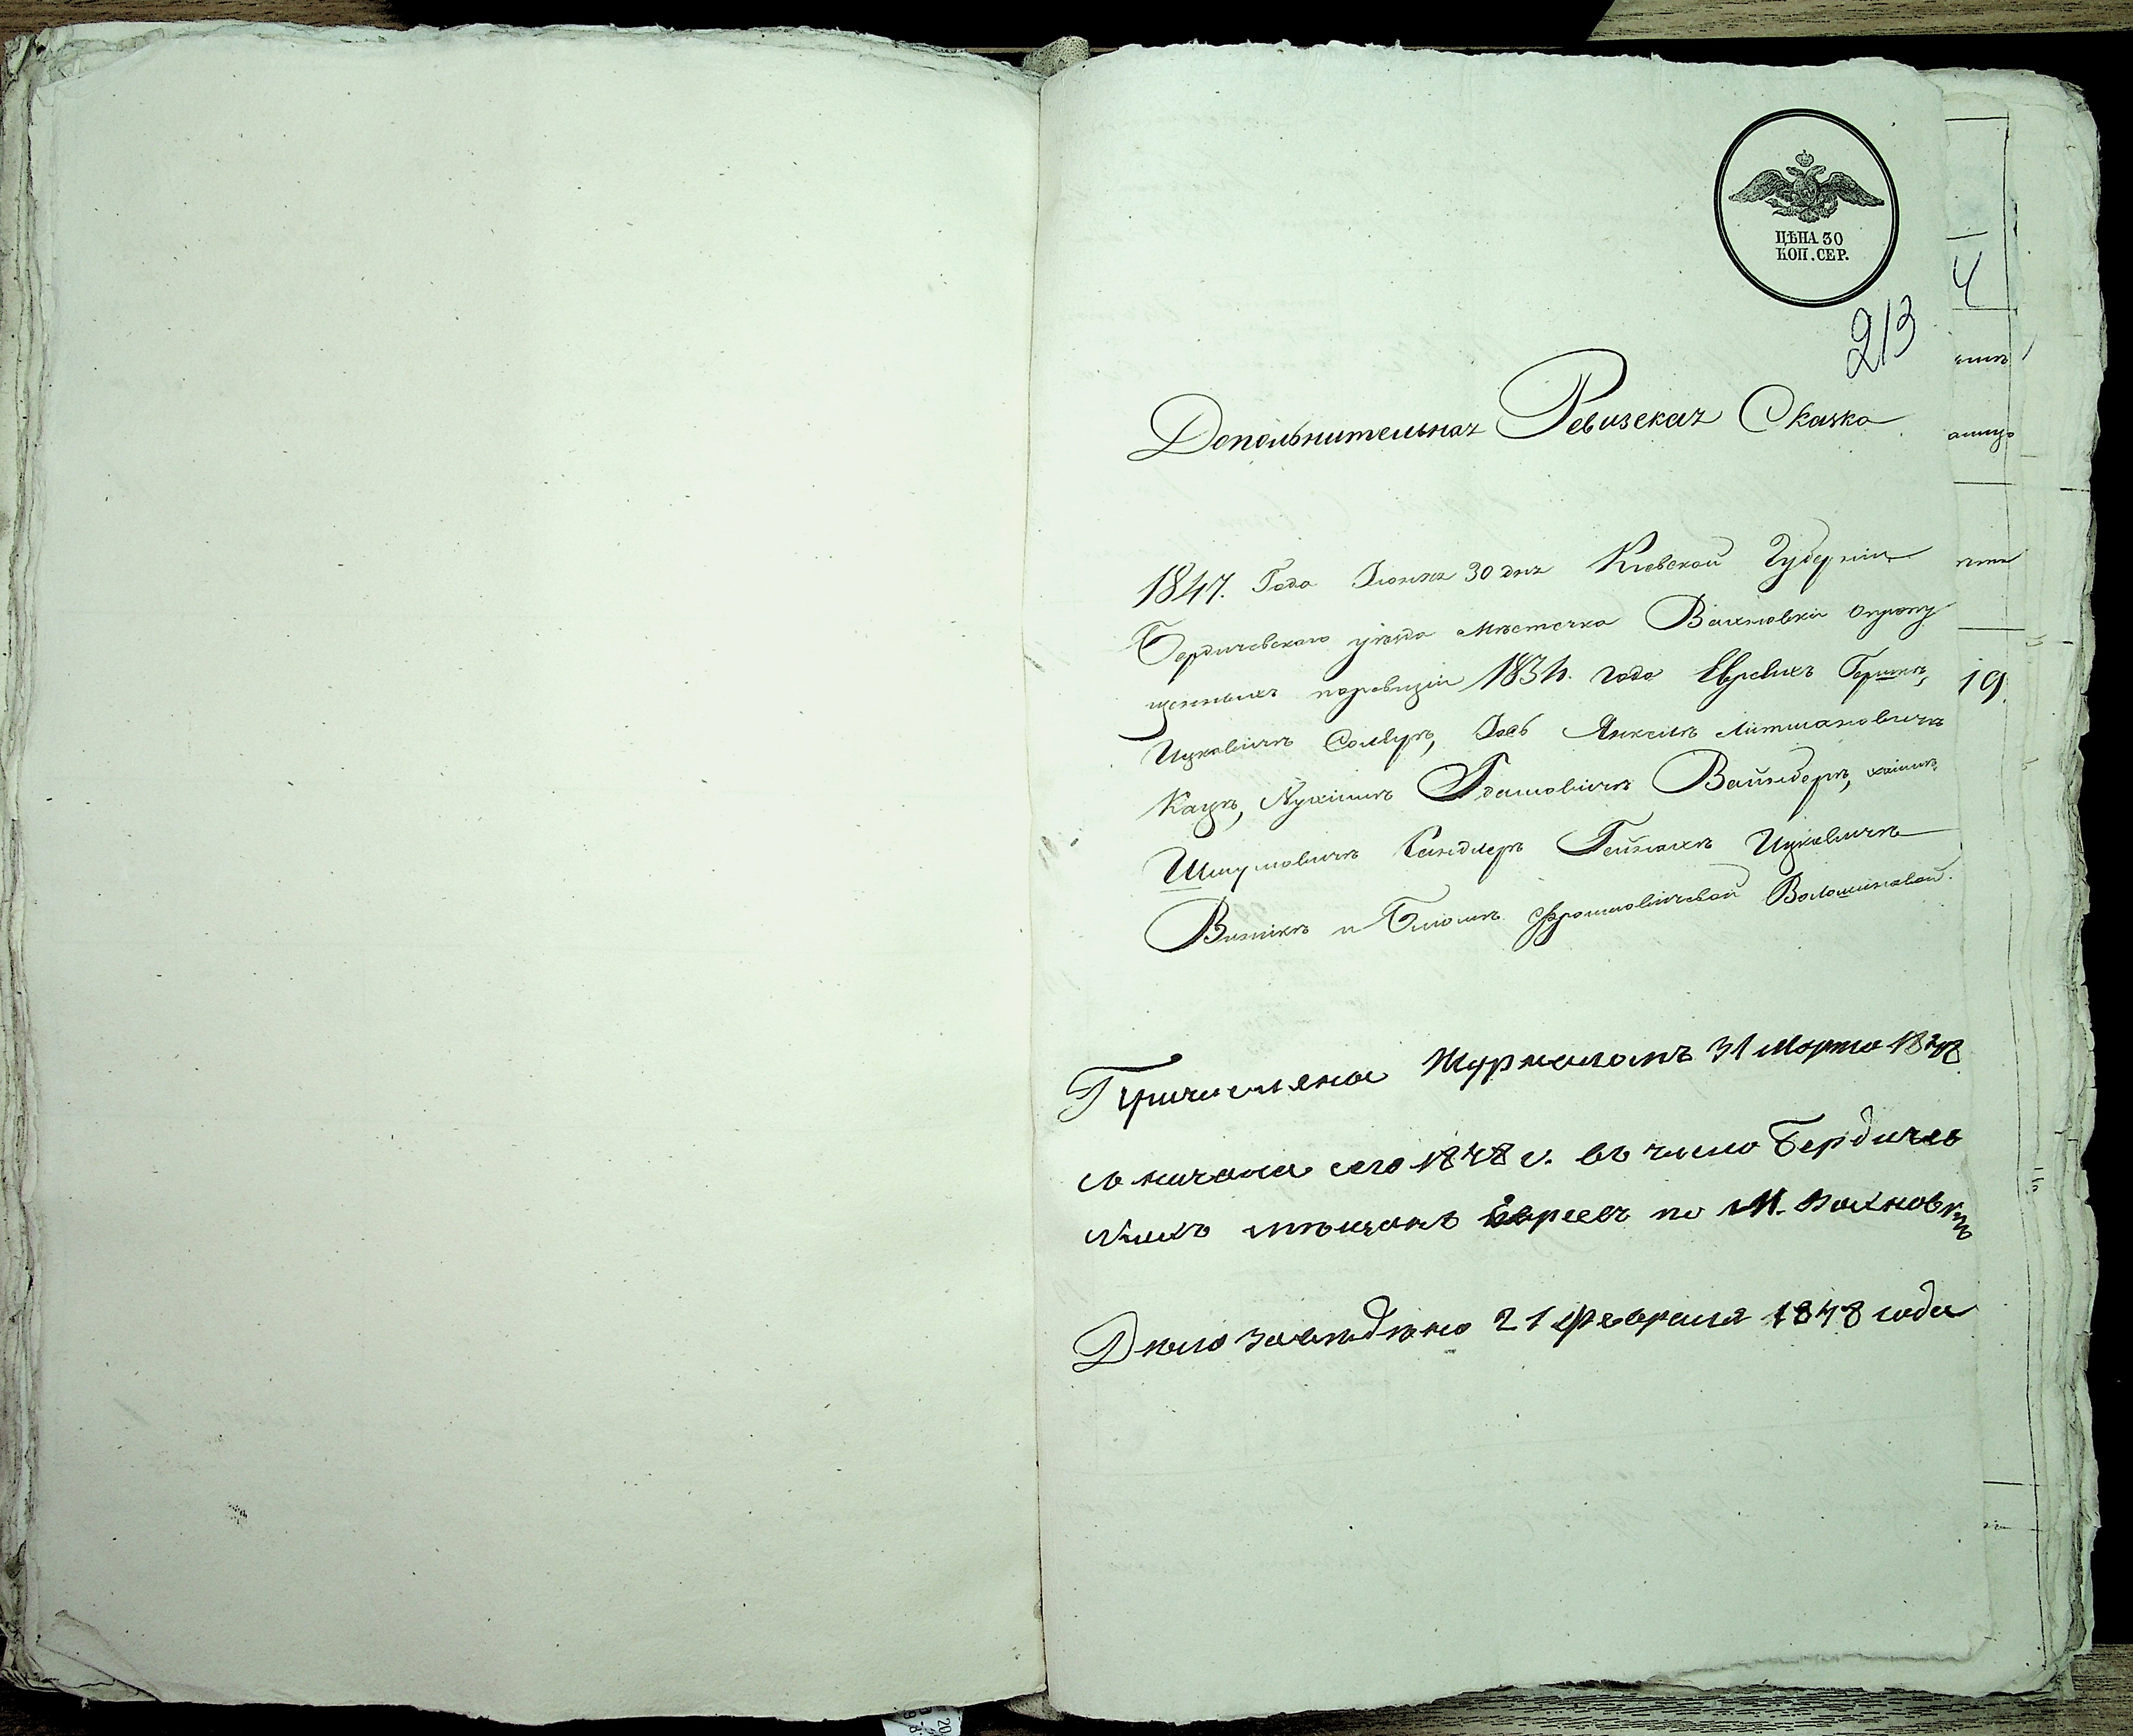 ЦѢНА 30
КОП. СЕР.
213
Допольнительная Ревизская Сказка
1847. Года Іюня 30 дня Кіевской Губерніи
Бердичевскаго уѣзда мѣстечка Вахновки опуту
щенныхъ поревизіи 1834. года Евреихъ Гершкъ,
Ицковичъ Солверъ, Іось Янкель Литмановичъ
Кацъ, Нухимъ Абрамовичъ Вайнберъ, хаимъ
Шмуловичъ Сандлеръ Гейнахъ Ицковичъ
Винникъ и Блюмъ Фроимовичевой Волошиновой.
Причислена Журналомъ 31 Марта 1848
съ начала сего 1848 г. въ число Бердичев
скихъ мѣщанъ Евреевъ по М. Вахновкѣ
Дело заведено 21 Февраля 1848 года
4
19.